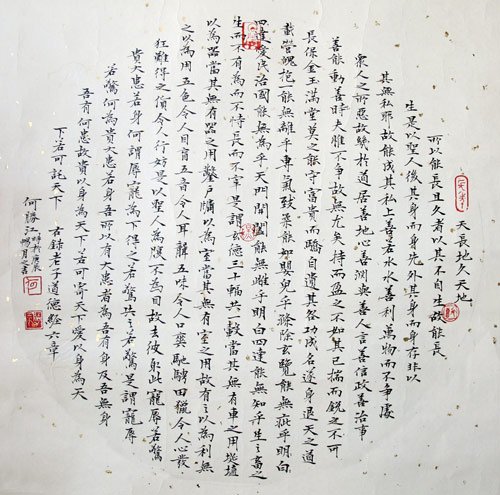 天長地久天地
所以能長且久者以其不自生故能長
生是以聖人後其身而身先外其身而身存非以
其無私耶故能成其私上善若水水善利萬物而不爭處
衆人之所惡故幾於道居善地心善淵與善人言善信政善治事
善能動善時夫唯不爭故無尤矣持而盈之不如其已揣而銳之不可
長保金玉滿堂莫之能守富貴而驕自遺其咎功成名遂身退天之道
載營魄抱一能無離乎專氣致柔能如嬰兒乎滌除玄覽能無疵乎明白
四達愛民治國能無為乎天門開闔能無雌乎明白四達能無知乎生之畜之
生而不有為而不恃長而不宰是謂玄德三十輻共一轂當其無有車之用埏埴
以為器當其無有器之用鑿戶牖以為室當其無有室之用故有之以為利無
之以為用五色令人目盲五音令人耳聾五味令人口爽馳騁田獵令人心發
狂難得之貨令人行妨是以聖人為腹不為目故去彼取此寵辱若驚
貴大患若身何謂寵辱為下得之若驚失之若驚是謂寵辱
若驚何為貴大患若身吾所以有大患者為吾有身及吾無身
吾有何患故貴以身為天下若可寄天下愛以身為天
下若可託天下 右錄老子道德經六章
何勝江